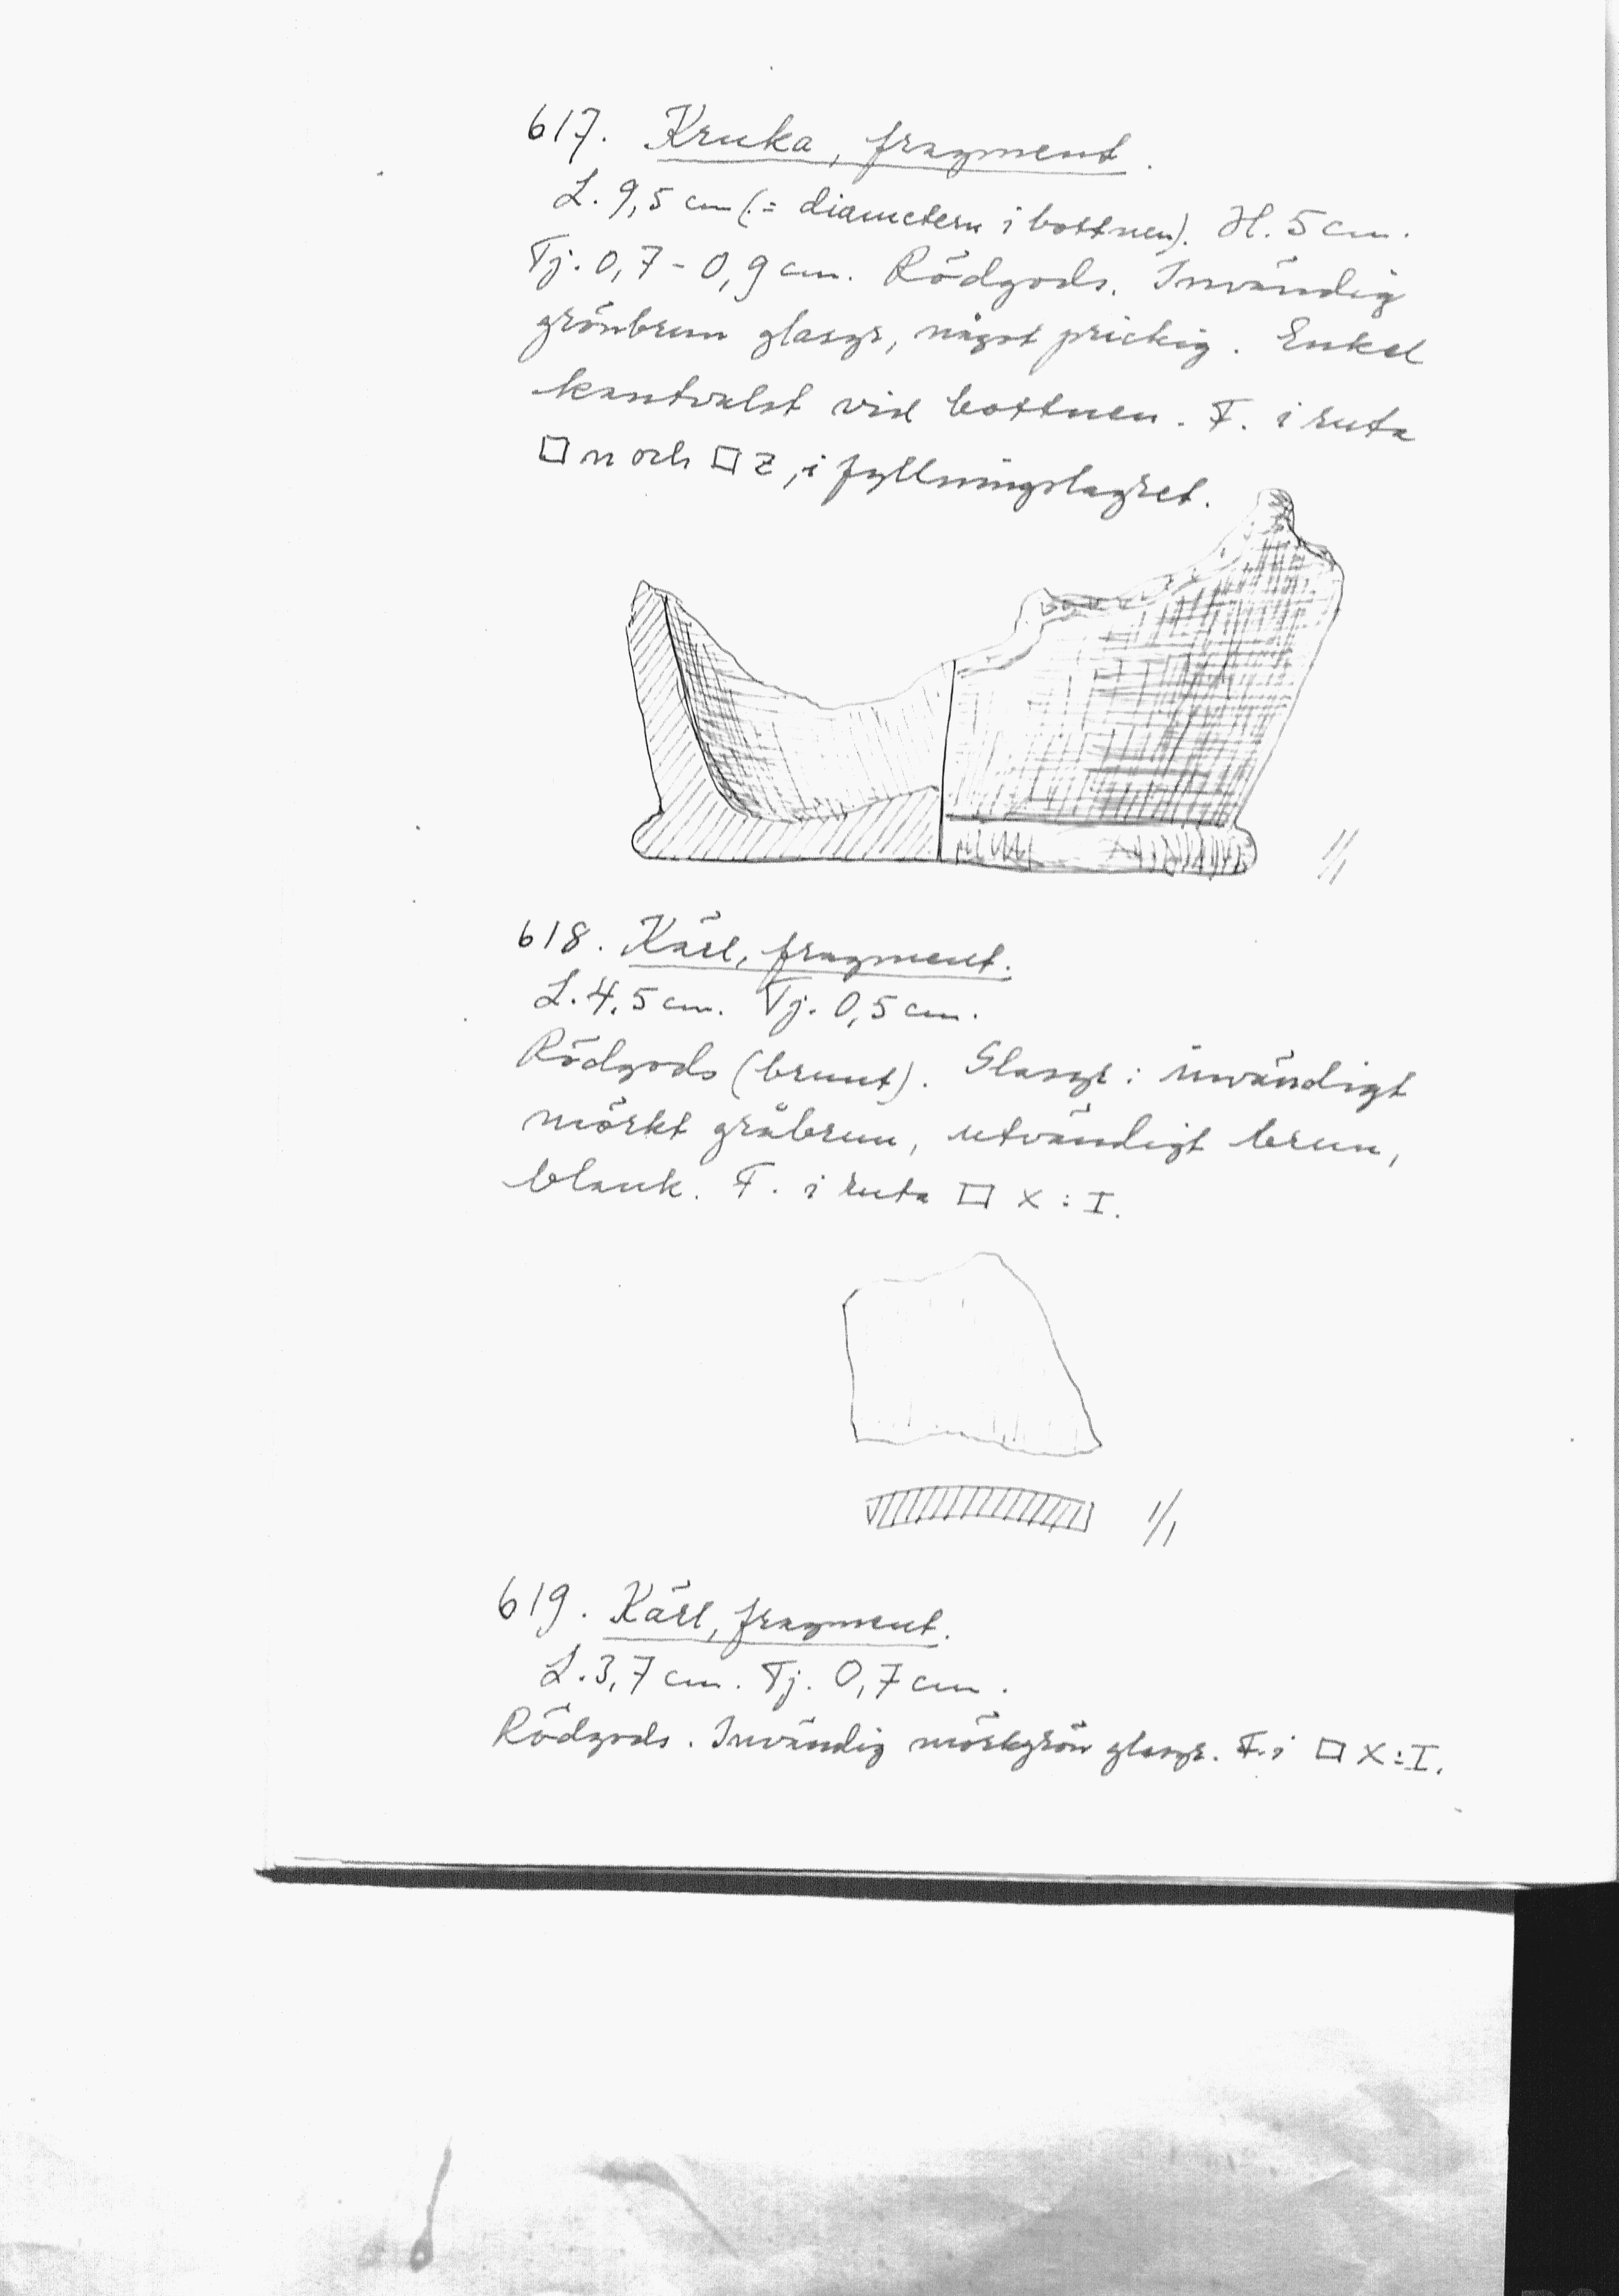 617. Kruka, fragment.
L. 9,5 cm (= diametern i bottnen). H. 5 cm.
Tj. 0,7 - 0,9 cm. Rödgods. Invändig
grönbrun glasyr, något prickig. Enkel
kantvulst vid bottnen. F. i ruta
□ n och □ z, i fyllningslagret.
1/1
618. Kärl, fragment.
L. 4,5 cm. Tj. 0,5 cm.
Rödgods (brunt). Glasyr: invändigt
mörkt gråbrun, utvändigt brun,
blank. F. i ruta □ X:I.
1/1
619. Kärl, fragment.
L. 3,7 cm. Tj. 0,7 cm.
Rödgods. Invändig mörkgrön glasyr. F. i □ X:I.